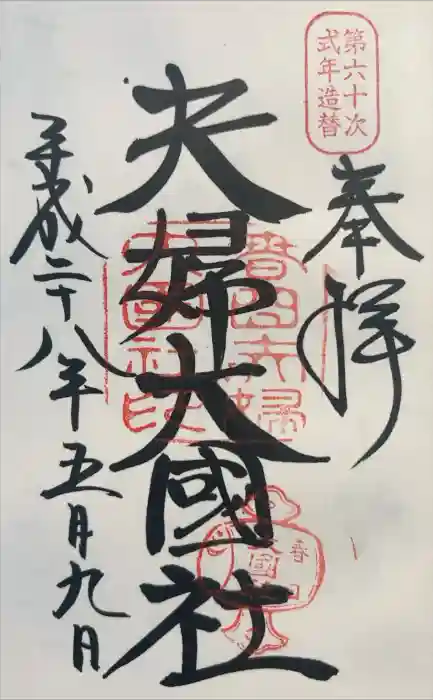 第六十次
式年造替
奉拝
夫婦大國社
春日夫婦
大國社印
平成二十八年五月九日